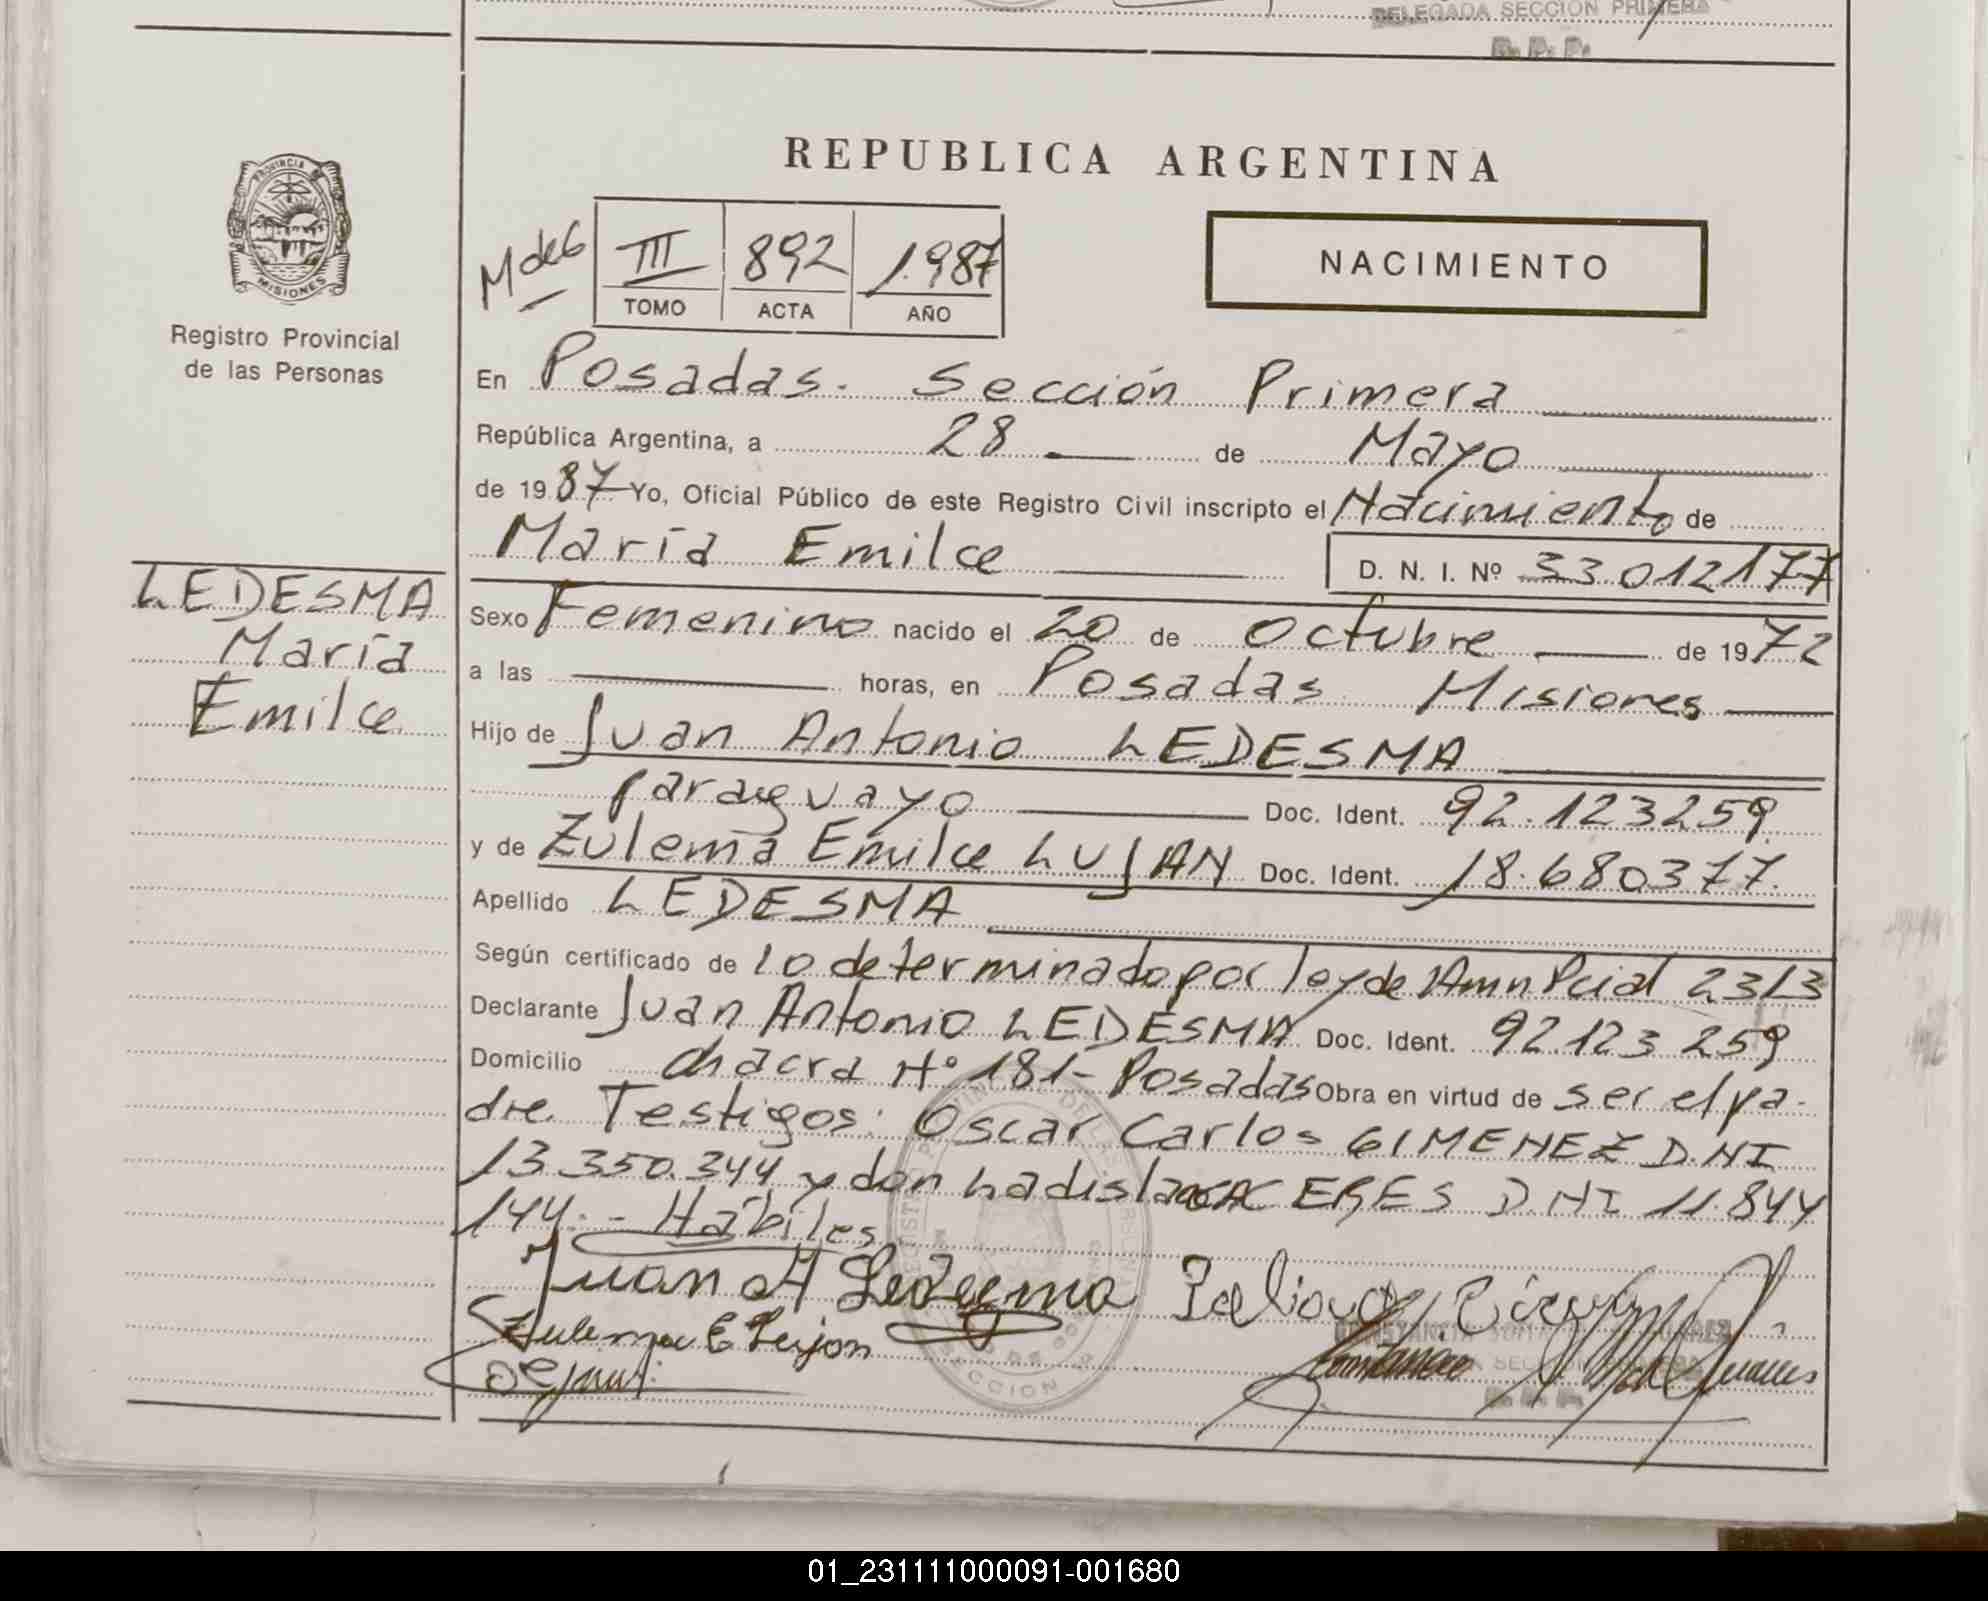 DELEGADA SECCION PRIMERA
R. P. P.
REPUBLICA ARGENTINA
PROVINCIA
MISIONES
Registro Provincial
de las Personas
III 892 1.987
TOMO ACTA AÑO
NACIMIENTO
En Posadas. Sección Primera
República Argentina, a 28 de Mayo
de 1987 Yo, Oficial Público de este Registro Civil inscripto el Nacimiento de
María Emilce D. N. I. Nº 33.012177
LEDESMA
María
Emilce
Sexo Femenino nacido el 20 de Octubre de 1972
a las horas, en Posadas Misiones
Hijo de Juan Antonio LEDESMA
paraguayo Doc. Ident. 92.123259
y de Zulema Emilce LUJAN Doc. Ident. 18.680377.
Apellido LEDESMA
Según certificado de lo determinado por ley de Amn Pcial 2313
Declarante Juan Antonio LEDESMA Doc. Ident. 92.123 259
Domicilio chacra Nº 181- Posadas Obra en virtud de ser el pa-
dre. Testigos: Oscar Carlos GIMENEZ D.NI
13.350.344 y don Ladislao CACERES D.NI 11.844
144.- Hábiles
Juan A Ledezma
Zulema E
01_231111000091-001680